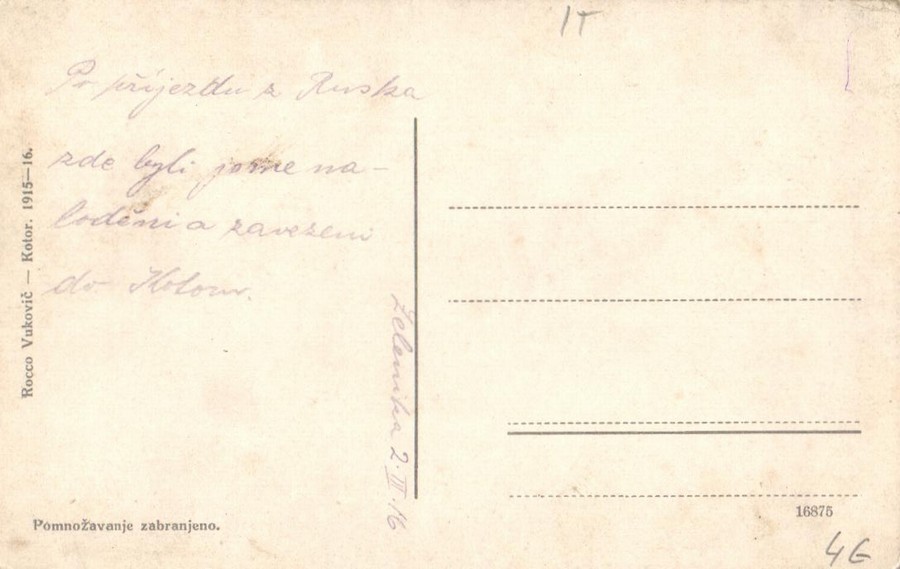 1T
Po příjezdu z Ruska
zde byli jsme na-
loděni a zavezeni
do Kotoru.
Zelenika 2. III. 16
Rocco Vukovič — Kotor. 1915—16.
Pomnožavanje zabranjeno.
16875
4G